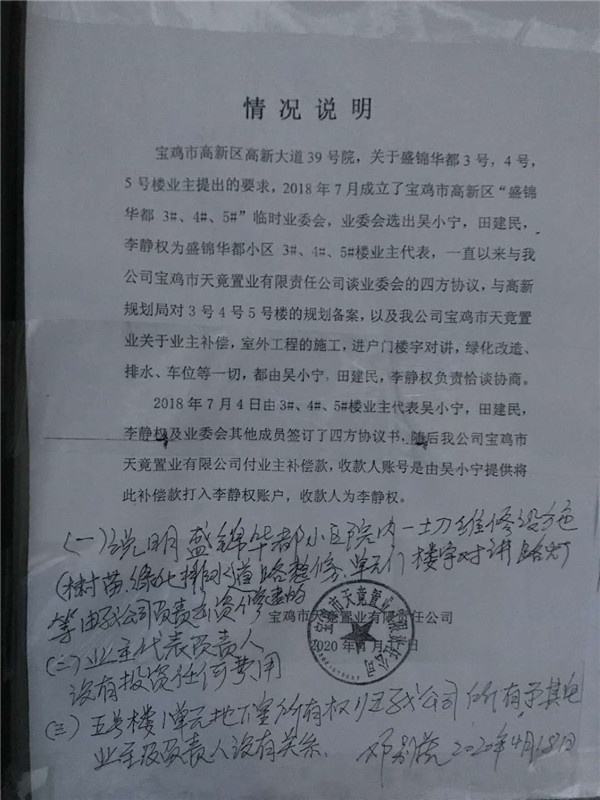 情况说明
宝鸡市高新区高新大道39号院，关于盛锦华都3号，4号，
5号楼业主提出的要求，2018年7月成立了宝鸡市高新区“盛锦
华都 3#、4#、5#”临时业委会，业委会选出吴小宁，田建民，
李静权为盛锦华都小区 3#、4#、5#楼业主代表，一直以来与我
公司宝鸡市天竟置业有限责任公司谈业委会的四方协议，与高新
规划局对3号4号5号楼的规划备案，以及我公司宝鸡市天竟置
业关于业主补偿，室外工程的施工，进户门楼宇对讲，绿化改造、
排水、车位等一切，都由吴小宁，田建民，李静权负责恰谈协商。
2018年7月4日由3#、4#、5#楼业主代表吴小宁，田建民，
李静权及业委会其他成员签订了四方协议书，随后我公司宝鸡市
天竟置业有限公司付业主补偿款，收款人账号是由吴小宁提供将
此补偿款打入李静权账户，收款人为李静权。
(一)说明盛锦华都小区院内一切维修设施
(树苗.绿化排水道路整修、单元门楼宇对讲路灯
等由我公司负责出资修建的
宝鸡市天竟置业有限责任公司
2020年 月 日
(二)业主代表负责人
没有投资任何费用
(三)五号楼1单元地下室所有权归我公司所有于其他
业主及负责人没有关系.
2020年4月18日